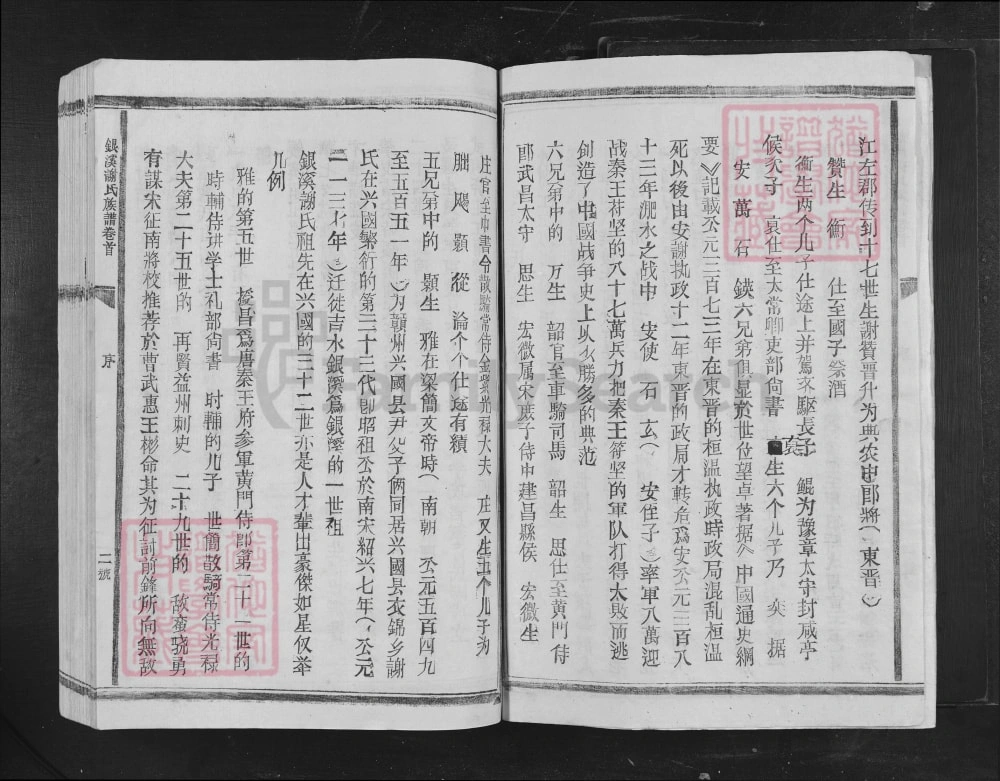 江左郡传到十七世生謝贊晋升为典农中郎將(東晋)
贊生衡 仕至國子祭酒
衡生两个儿子仕途上并駕 驅長子 鲲为豫章太守封咸亭
侯次子 裒仕至太常卿吏部尙書 裒生六个儿子乃 奕 据
安 萬 石 鉄六兄第俱显於世位望卓著据《中國通史綱
要》記載公元三百七三年在東晋的桓温执政時政局混乱桓温
死以後由安謝执政十二年東晋的政局才转危爲安公元三百八
十三年淝水之战中 安使 石 玄( 安侄子)率军八萬迎
战秦王苻坚的八十七萬兵力把秦王苻坚的軍队打得大敗而逃
创造了中國战爭史上以少勝多的典范
六兄第中的 万生 韶官至車騎司馬 韶生 思仕至黄門侍
郎武昌太守 思生 宏微属宋 庶子侍中建昌縣侯 宏微生
庄官至中書令散騎常侍金紫光禄大夫 庄又生五个儿子为
朏 飏 顥 從 瀹个个仕途有績
五兄第中的 顥生 雅在梁簡文帝時(南朝 公元五百四九
至五百五一年)为贛州兴國县尹父子俩同居兴國县衣錦乡謝
氏在兴國繁衍的第三十二代卽昭祖公於南宋紹兴七年(公元
一一三七年)迁徙吉水銀溪爲銀溪的一世祖
銀溪謝氏祖先在兴國的三十二世亦是人才輩出豪傑如星仅举
几例
雅的第五世 援昌爲唐秦王府參軍黄門侍郎第二十一世的
時輔侍讲学士礼部尙書 时輔的儿子 世簡散騎常侍光禄
大夫第二十五世的 再賢益州刺史 二十九世的 敌蛮骁勇
有謀宋征南將校推荐於曹武惠王彬命其为征討前鋒所向無敌
銀溪謝氏族譜卷首
序
二號